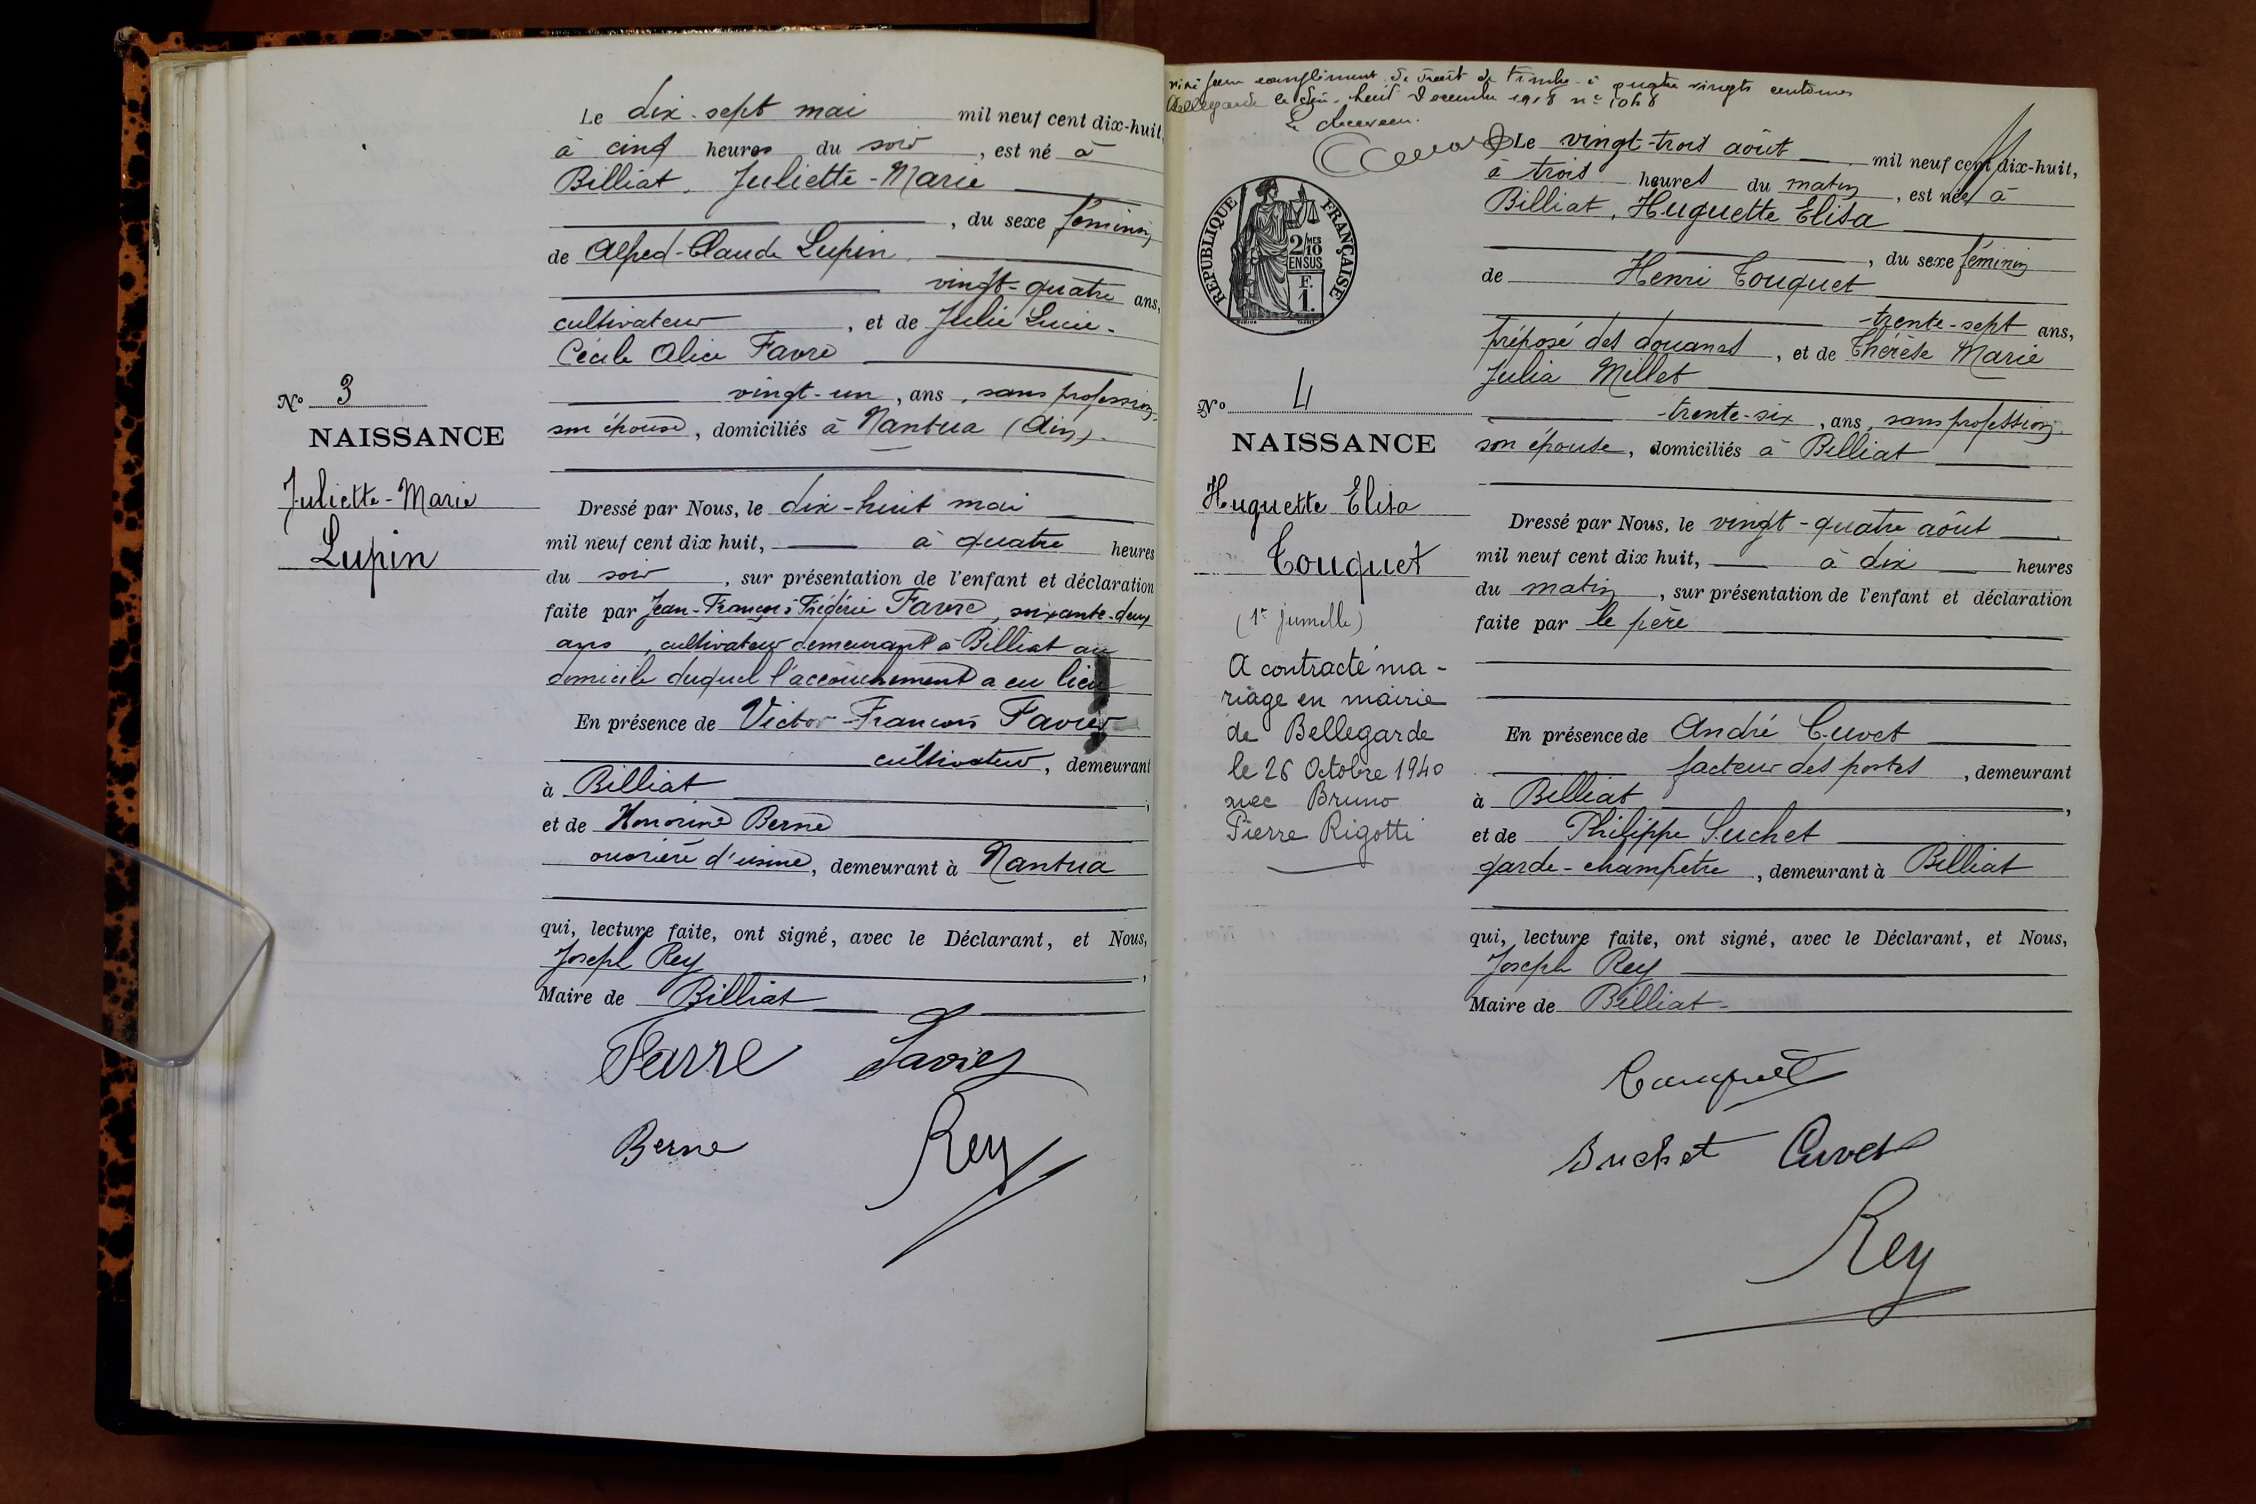 Le dix-sept mai mil neuf cent dix-huit,
à cinq heures du soir, est né à
Billiat, Juliette-Marie
, du sexe féminin
de Alfred-Claude Lupin
vingt-quatre ans,
cultivateur, et de Julie Lucie-
Cécile Alice Favre
vingt-un, ans, sans profession,
son épouse, domiciliés à Nantua (Ain).
Nº 3
NAISSANCE
Juliette-Marie
Lupin
Dressé par Nous, le dix-huit mai
mil neuf cent dix huit, à quatre heures
du soir, sur présentation de l'enfant et déclaration
faite par Jean-François Frédéric Favre, soixante-deux
ans, cultivateur demeurant à Billiat au
domicile duquel l'accouchement a eu lieu
En présence de Victor-François Favier
cultivateur, demeurant
à Billiat,
et de Honorine Berne
ouvrière d'usine, demeurant à Nantua
qui, lecture faite, ont signé, avec le Déclarant, et Nous,
Joseph Rey,
Maire de Billiat
Favre Favier
Berne Rey
visé pour complément de droit de timbre à quatre vingts centimes
Bellegarde le dix-huit Décembre 1918 nº 1068
Le Receveur.
RÉPUBLIQUE FRANÇAISE
2/10 MES
EN SUS
F.
1.
Le vingt-trois août mil neuf cent dix-huit,
à trois heures du matin, est née à
Billiat, Huguette Elisa
, du sexe féminin
de Henri Touquet
trente-sept ans,
préposé des douanes, et de Thérèse Marie
Julia Millet
trente-six, ans, sans profession,
son épouse, domiciliés à Billiat
Nº 4
NAISSANCE
Huguette Elisa
Touquet
(1re jumelle)
A contracté ma-
riage en mairie
de Bellegarde
le 26 Octobre 1940
avec Bruno
Pierre Rigotti
Dressé par Nous, le vingt-quatre août
mil neuf cent dix huit, à dix heures
du matin, sur présentation de l'enfant et déclaration
faite par le père
En présence de André Cuvet
facteur des postes, demeurant
à Billiat,
et de Philippe Suchet
garde-champêtre, demeurant à Billiat
qui, lecture faite, ont signé, avec le Déclarant, et Nous,
Joseph Rey
Maire de Billiat
Touquet
Suchet Cuvet
Rey